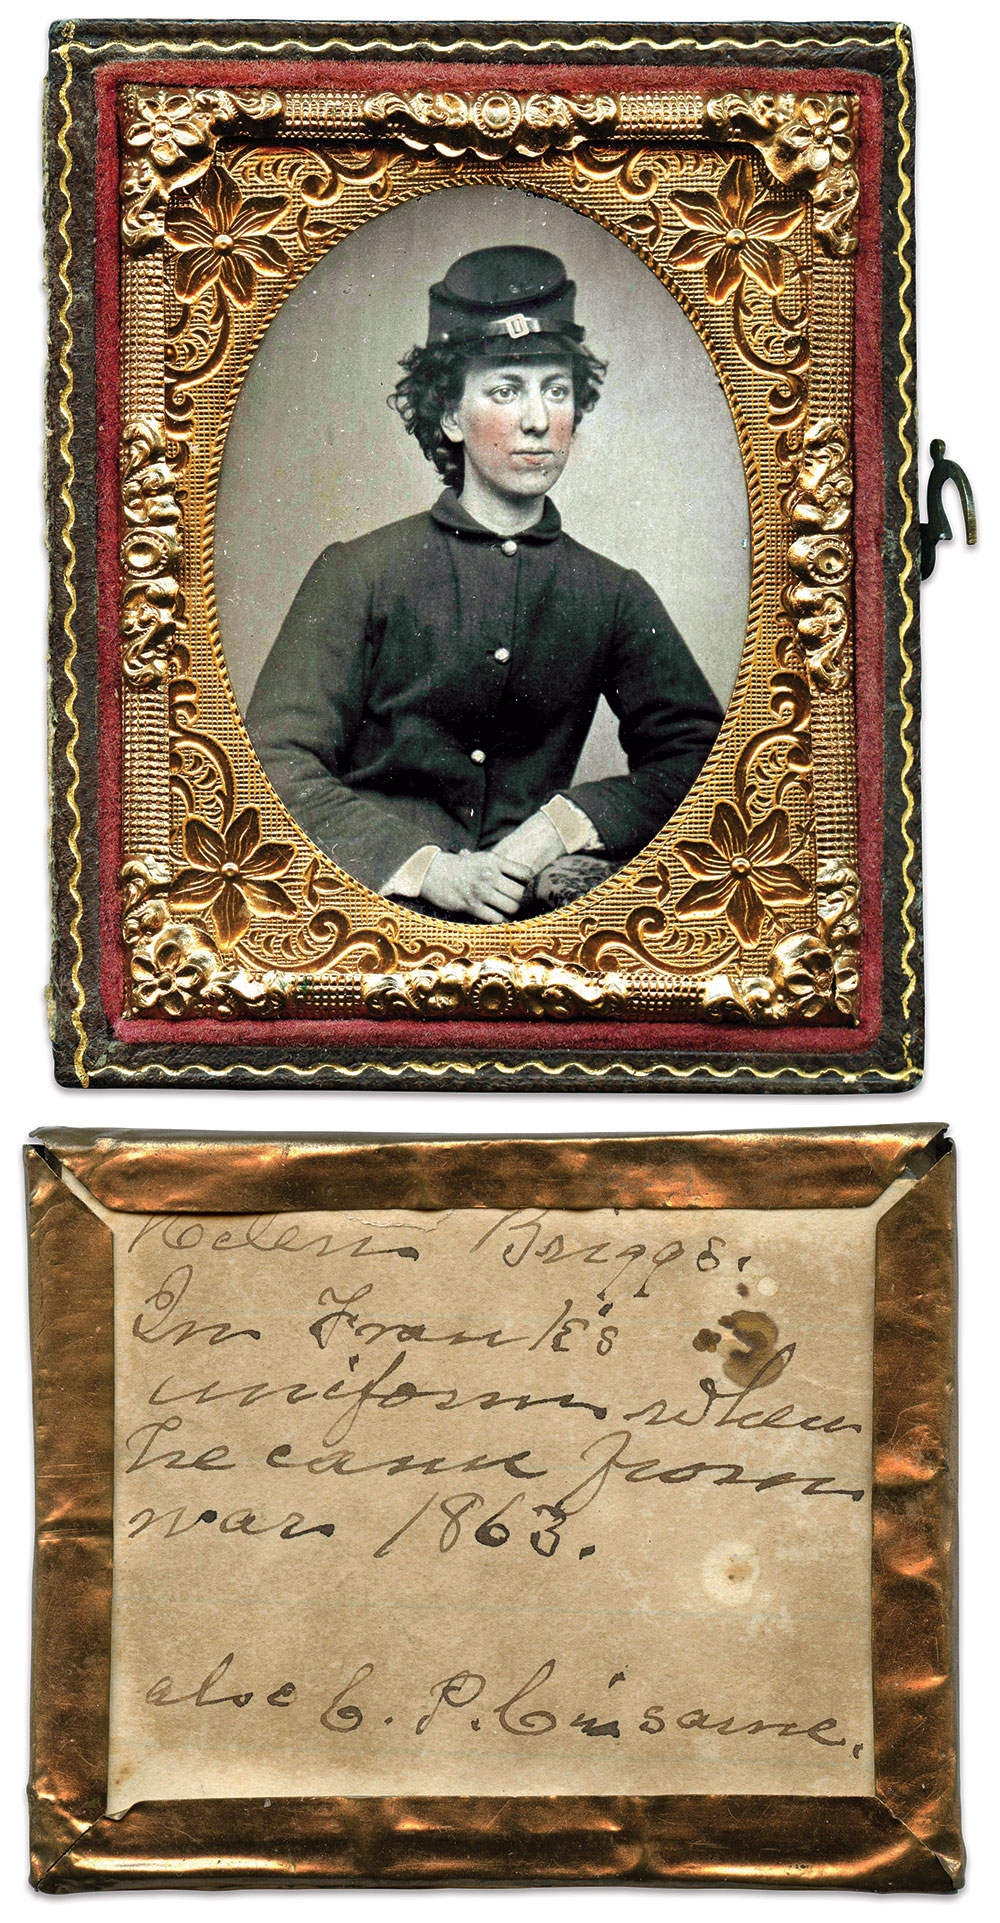 Helen Briggs.
In Frank's
uniform when
he came from
war 1863.
also C. P. in same.